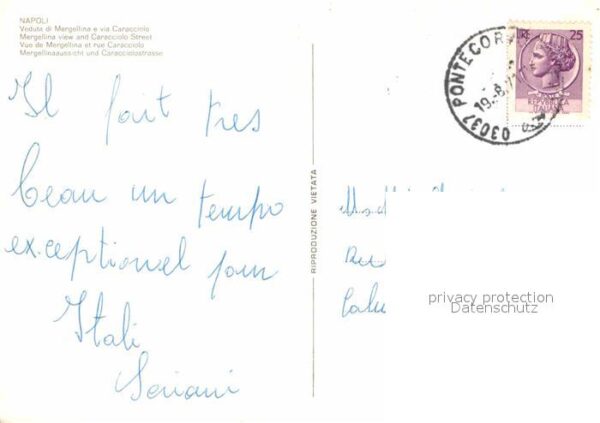 NAPOLI
Veduta di Mergellina e via Caracciolo
Mergellina view and Caracciolo Street
Vue de Mergellina et rue Caracciolo
Mergellinaaussicht und Caracciolostrasse
Il fait tres
beau un tempo
exceptionel pour
Itali
RIPRODUZIONE VIETATA
03037 PONTECORVO
25
REPUBBLICA
ITALIANA
privacy protection
Datenschutz